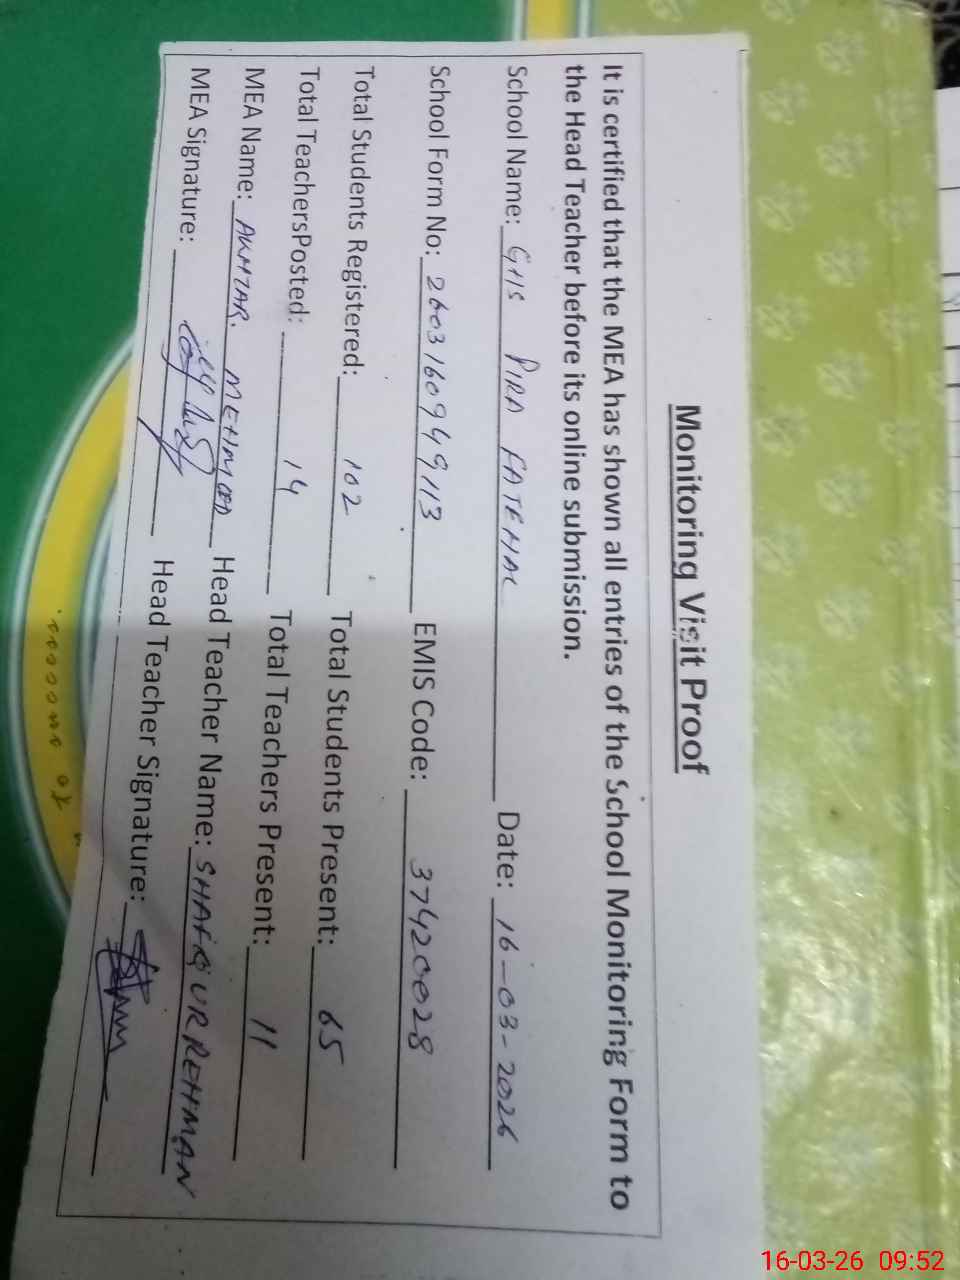 Monitoring Visit Proof
It is certified that the MEA has shown all entries of the School Monitoring Form to
the Head Teacher before its online submission.
School Name: GHS PIRA FATEHAL Date: 16-03-2026
School Form No: 2603160949113 EMIS Code: 37420028
Total Students Registered: 102 Total Students Present: 65
Total TeachersPosted: 14 Total Teachers Present: 11
MEA Name: AKHTAR MEHMOOD Head Teacher Name: SHAFIQ UR REHMAN
MEA Signature: Head Teacher Signature:
16-03-26 09:52